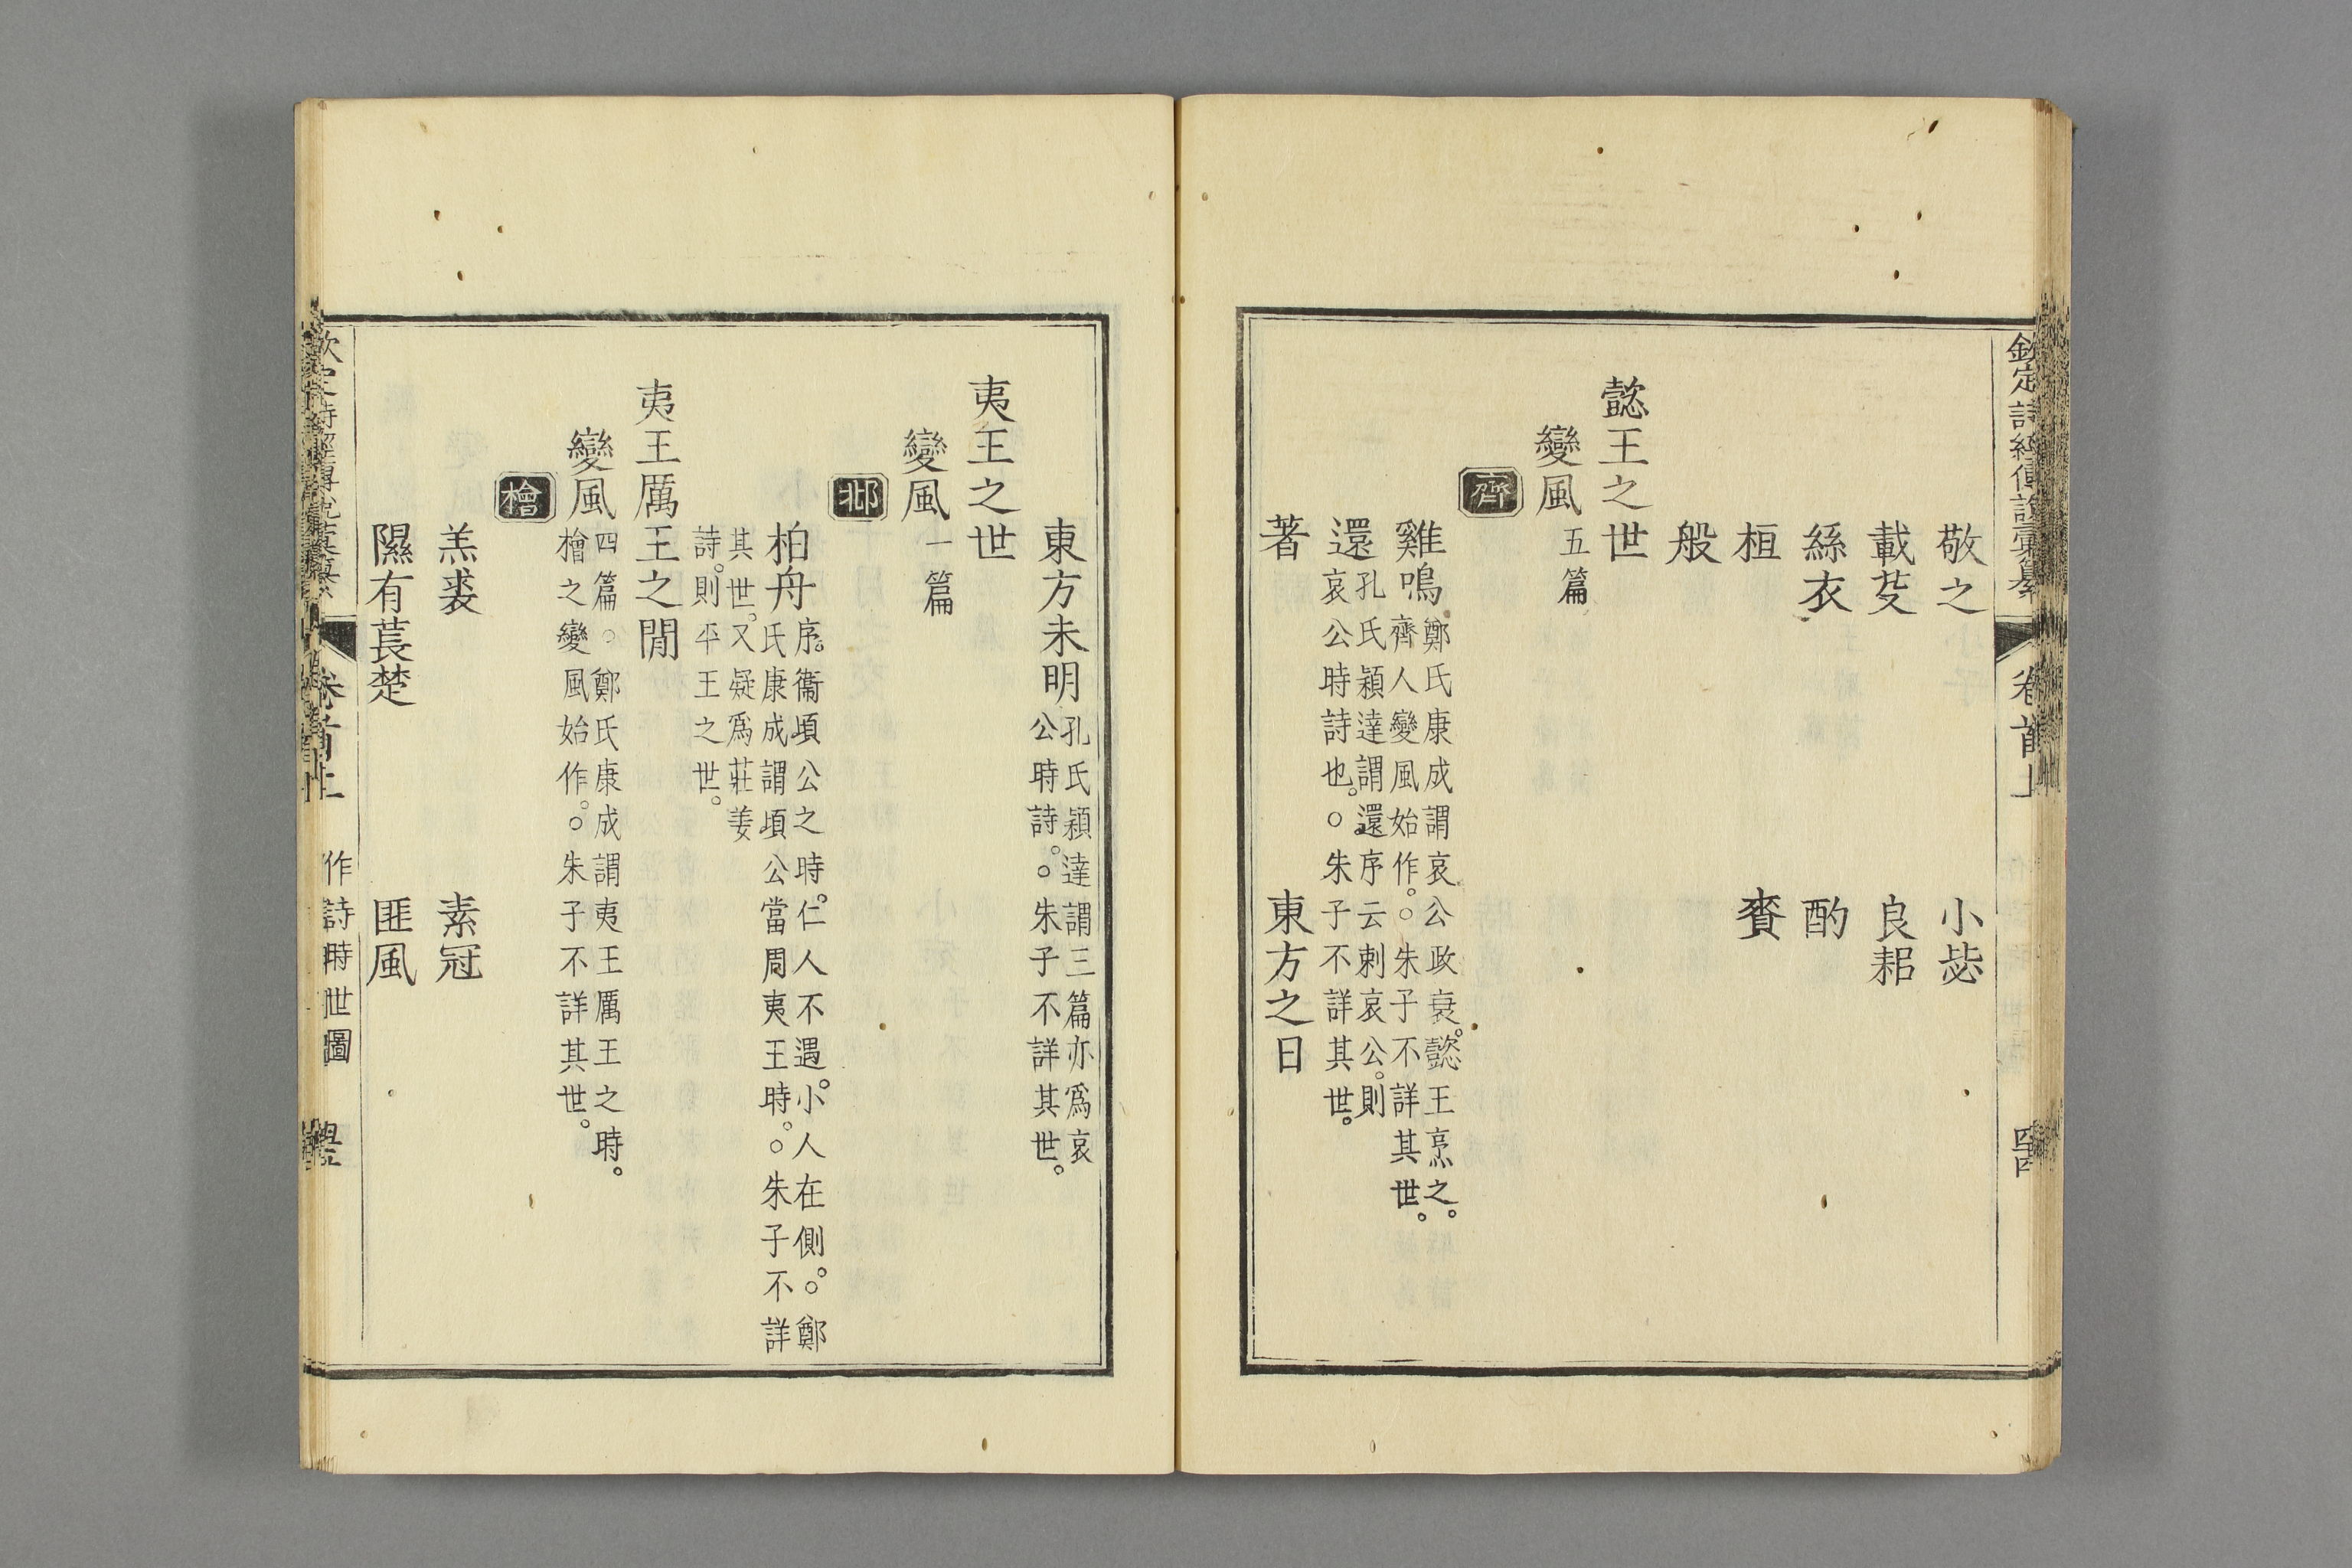 欽定詩經傳說彙纂 卷首上 四四
敬之 小毖
載芟 良耜
絲衣 酌
桓 賚
般
懿王之世
變風 五篇
齊
雞鳴 鄭氏康成謂哀公政衰。懿王烹之。
齊人變風始作。○朱子不詳其世。
還 孔氏穎達謂還序云刺哀公。則
哀公時詩也。○朱子不詳其世。
著 東方之日
東方未明 孔氏穎達謂三篇亦爲哀
公時詩。○朱子不詳其世。
夷王之世
變風 一篇
邶
柏舟 序。衞頃公之時。仁人不遇。小人在側。○鄭
氏康成謂頃公當周夷王時。○朱子不詳
其世。又疑爲莊姜
詩。則平王之世。
夷王厲王之閒
變風 四篇。○鄭氏康成謂夷王厲王之時。
檜之變風始作。○朱子不詳其世。
檜
羔裘 素冠
隰有萇楚 匪風
欽定詩經傳說彙纂 卷首上 作詩時世圖